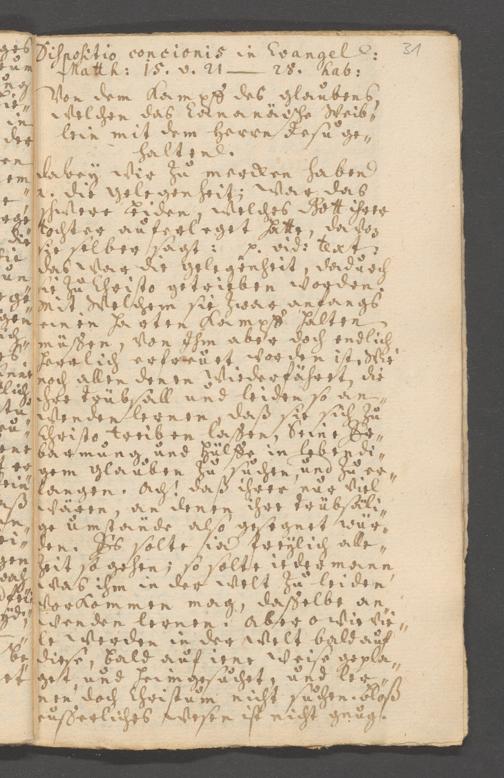 31
Dispositio concionis in Evangel:
Matth: 15. v. 21 — 28. hab:
Von dem Kampff des glaubens,
welchen das Cananäische Weib„
lein mit dem Herrn Jesu ge„
halten.
dabey wir zu mercken haben
1. die gelegenheit; war das
schwere Leiden, welches Gott ihrer
tochter auferleget hatte, davon
sie selber sagt: vid: text.
das war die gelegenheit, dadurch
sie zu Christo getrieben worden.
mit welchem sie zwar anfangs
einen harten Kampff halten
müssen, von Ihm aber doch endlich
herrlich erfreuet worden ist. Wie
noch allen denen wiederfähret, die
ihre trübsall und leiden so an„
wenden lernen, daß sie sich zu
Christo treiben lassen, Seine Er„
barmung und hülffe in lebendi„
gem glauben zu suchen, und zu er„
langen. Ach! daß ihrer nur viel
wären, an denen ihre trübsäli„
ge umstände also gesegnet wür„
den. Es solte ja freylich alle„
zeit so gehen; so solte iedermann
was ihm in der welt zu leiden
vorkommen mag, dasselbe an„
wenden lernen: Aber o wie vie„
le werden in der welt bald auf
diese, bald auf iene weise gepla„
get und heimgesuchet, und ler„
nen doch Christum nicht suchen. bloß
eusserliches wesen ist nicht gnug.